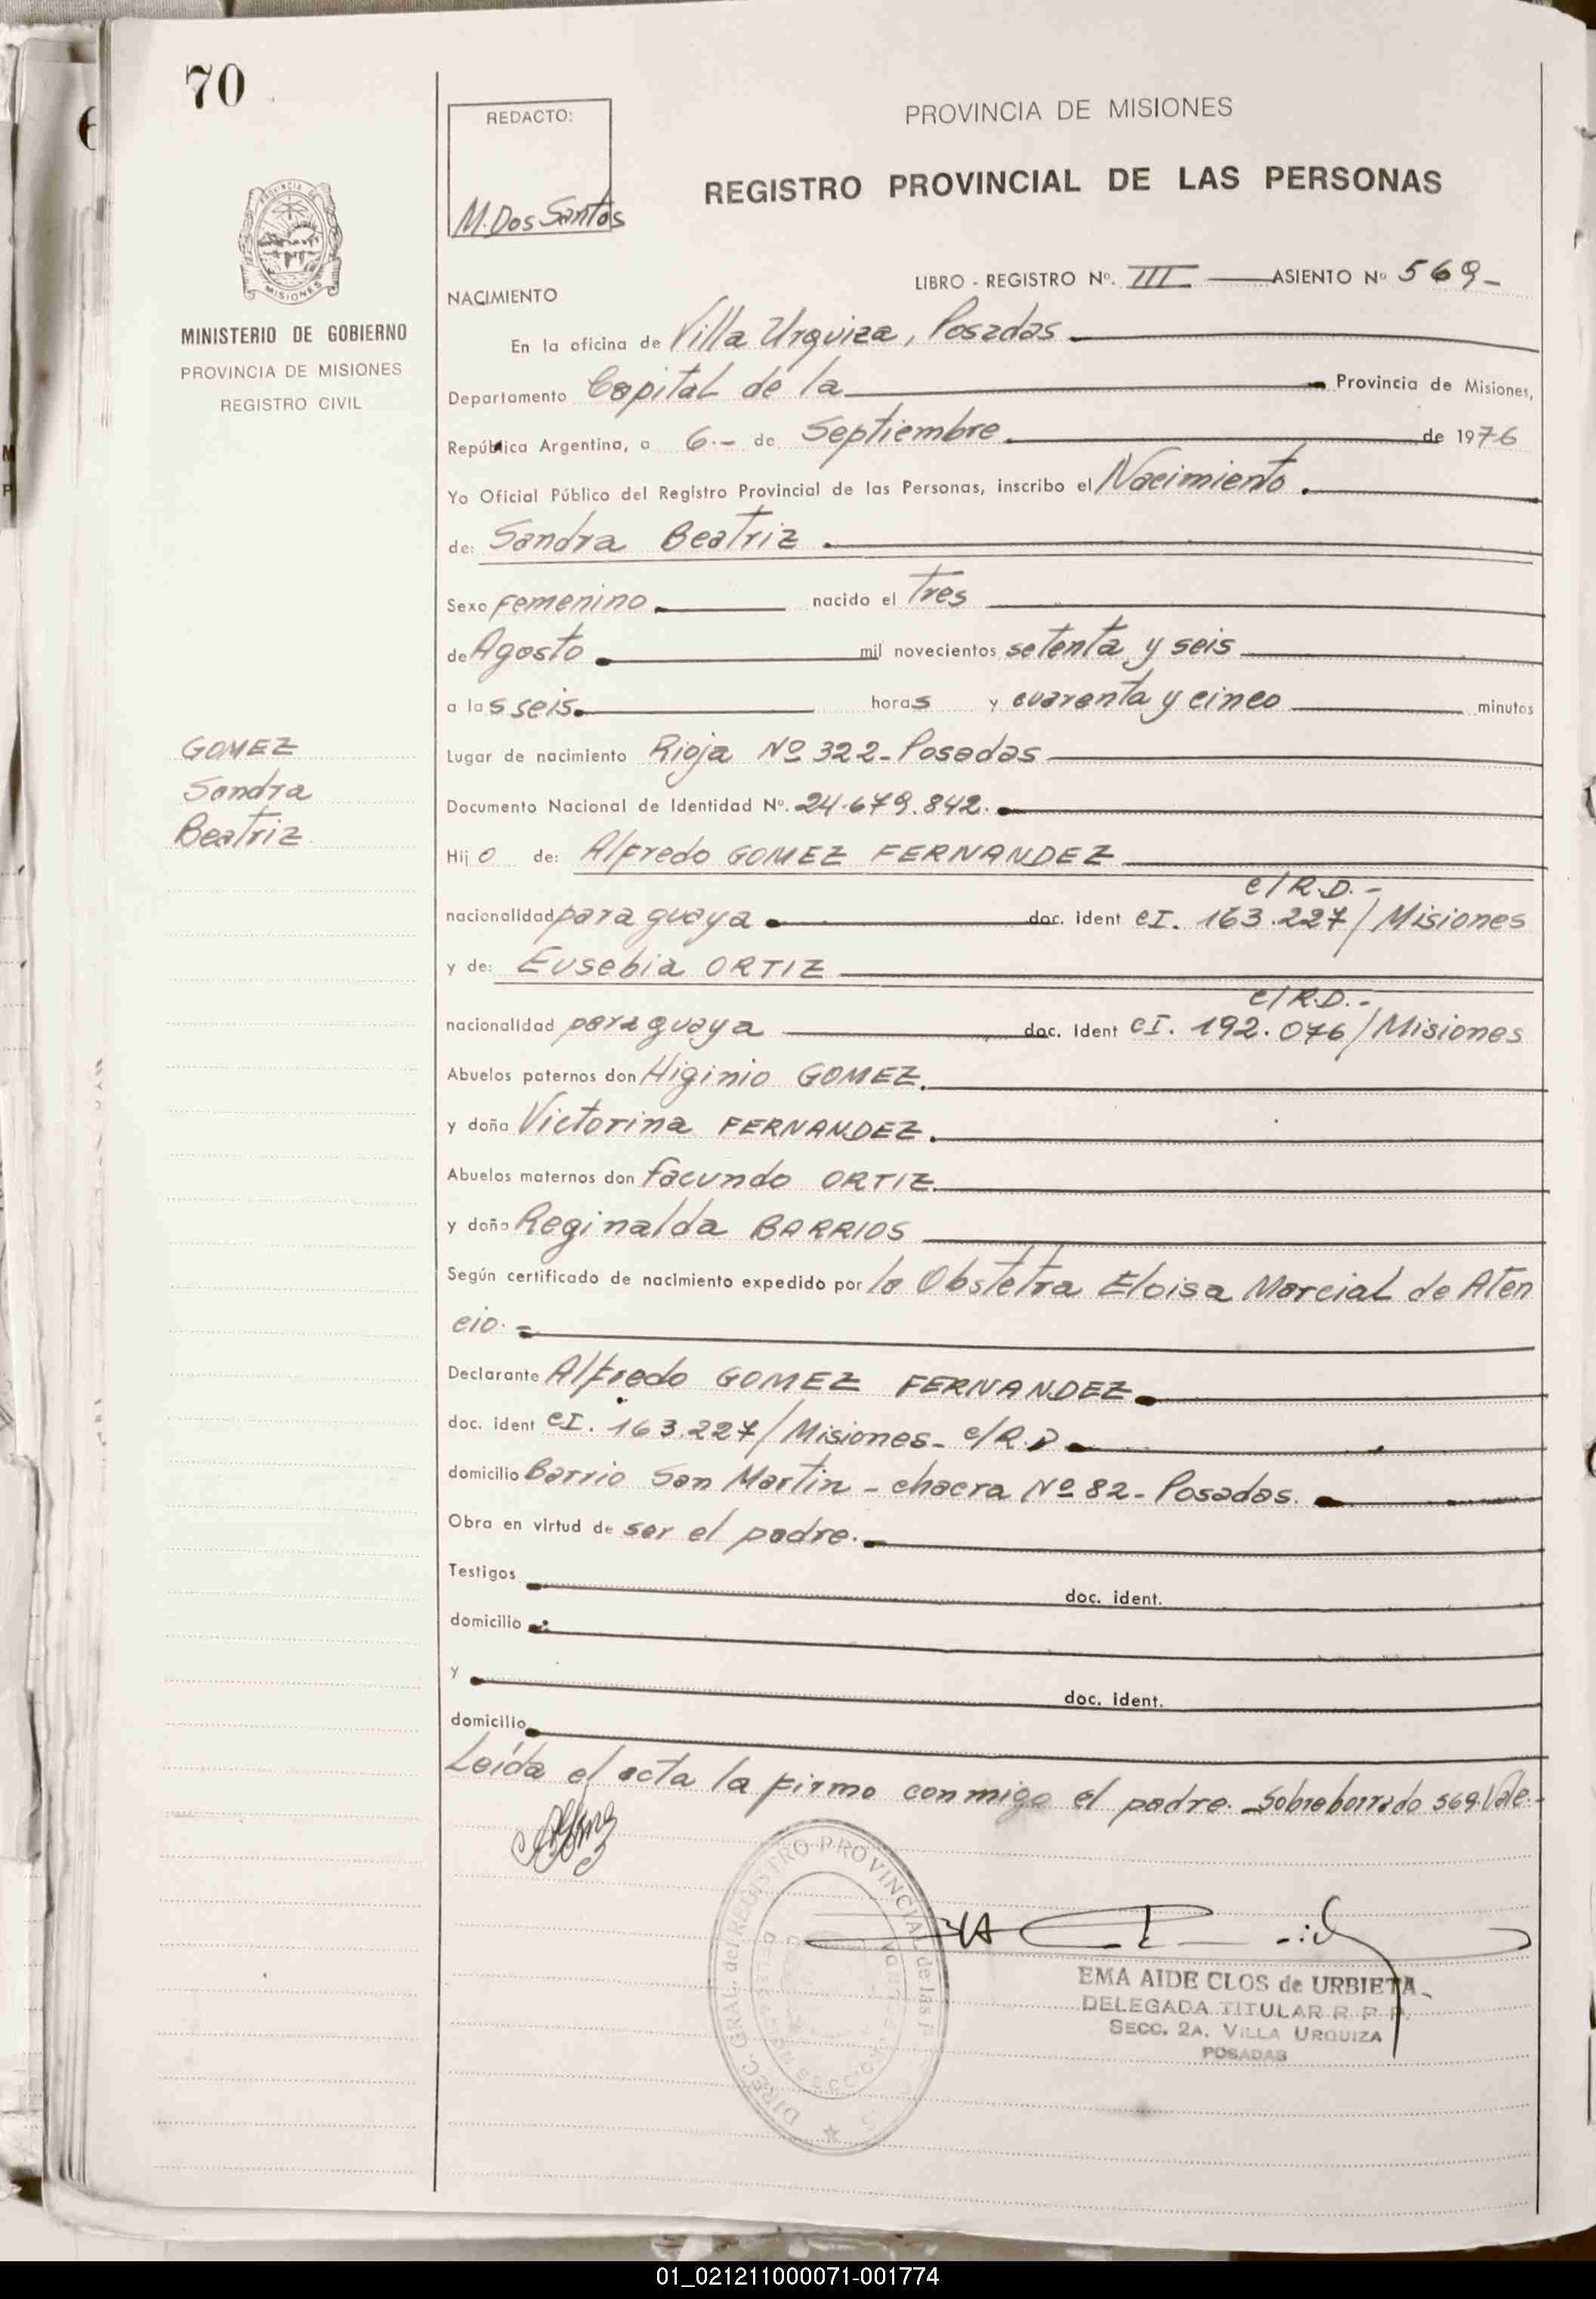 70
REDACTO:
M. Dos Santos
PROVINCIA DE MISIONES
REGISTRO PROVINCIAL DE LAS PERSONAS
PROVINCIA DE
MISIONES
MINISTERIO DE GOBIERNO
PROVINCIA DE MISIONES
REGISTRO CIVIL
LIBRO - REGISTRO Nº. III ASIENTO Nº 569-
NACIMIENTO
En la oficina de Villa Urquiza, Posadas
Departamento Capital de la Provincia de Misiones,
República Argentina, a 6.- de Septiembre de 1976
Yo Oficial Público del Registro Provincial de las Personas, inscribo el Nacimiento.
de: Sandra Beatriz
Sexo femenino nacido el Tres
de Agosto mil novecientos setenta y seis
a las seis horas y cuarenta y cinco minutos
GOMEZ
Sandra
Beatriz
Lugar de nacimiento Rioja Nº 322- Posadas
Documento Nacional de Identidad Nº. 24.679.842.
Hijo de: Alfredo GOMEZ FERNANDEZ
c/R.D.-
nacionalidad paraguaya doc. ident CI. 163.227/Misiones
y de: Eusebia ORTIZ
c/R.D.-
nacionalidad paraguaya doc. ident CI. 192.076/Misiones
Abuelos paternos don Higinio GOMEZ.
y doña Victorina FERNANDEZ.
Abuelos maternos don facundo ORTIZ
y doña Reginalda BARRIOS
Según certificado de nacimiento expedido por la Obstetra Eloisa Marcial de Aten
cio.
Declarante Alfredo GOMEZ FERNANDEZ
doc. ident CI. 163.227/Misiones- c/R.D
domicilio Barrio San Martin - chacra Nº 82- Posadas.
Obra en virtud de ser el padre.
Testigos doc. ident.
domicilio
y doc. ident.
domicilio
Leída el acta la firmo conmigo el padre. Sobreborrado 569. Vale.-
DIREC. GRAL. del REGISTRO PROVINCIAL de las P
EMA AIDE CLOS de URBIETA
DELEGADA TITULAR R. P. P.
SECC. 2A. VILLA URQUIZA
POSADAS
01_021211000071-001774